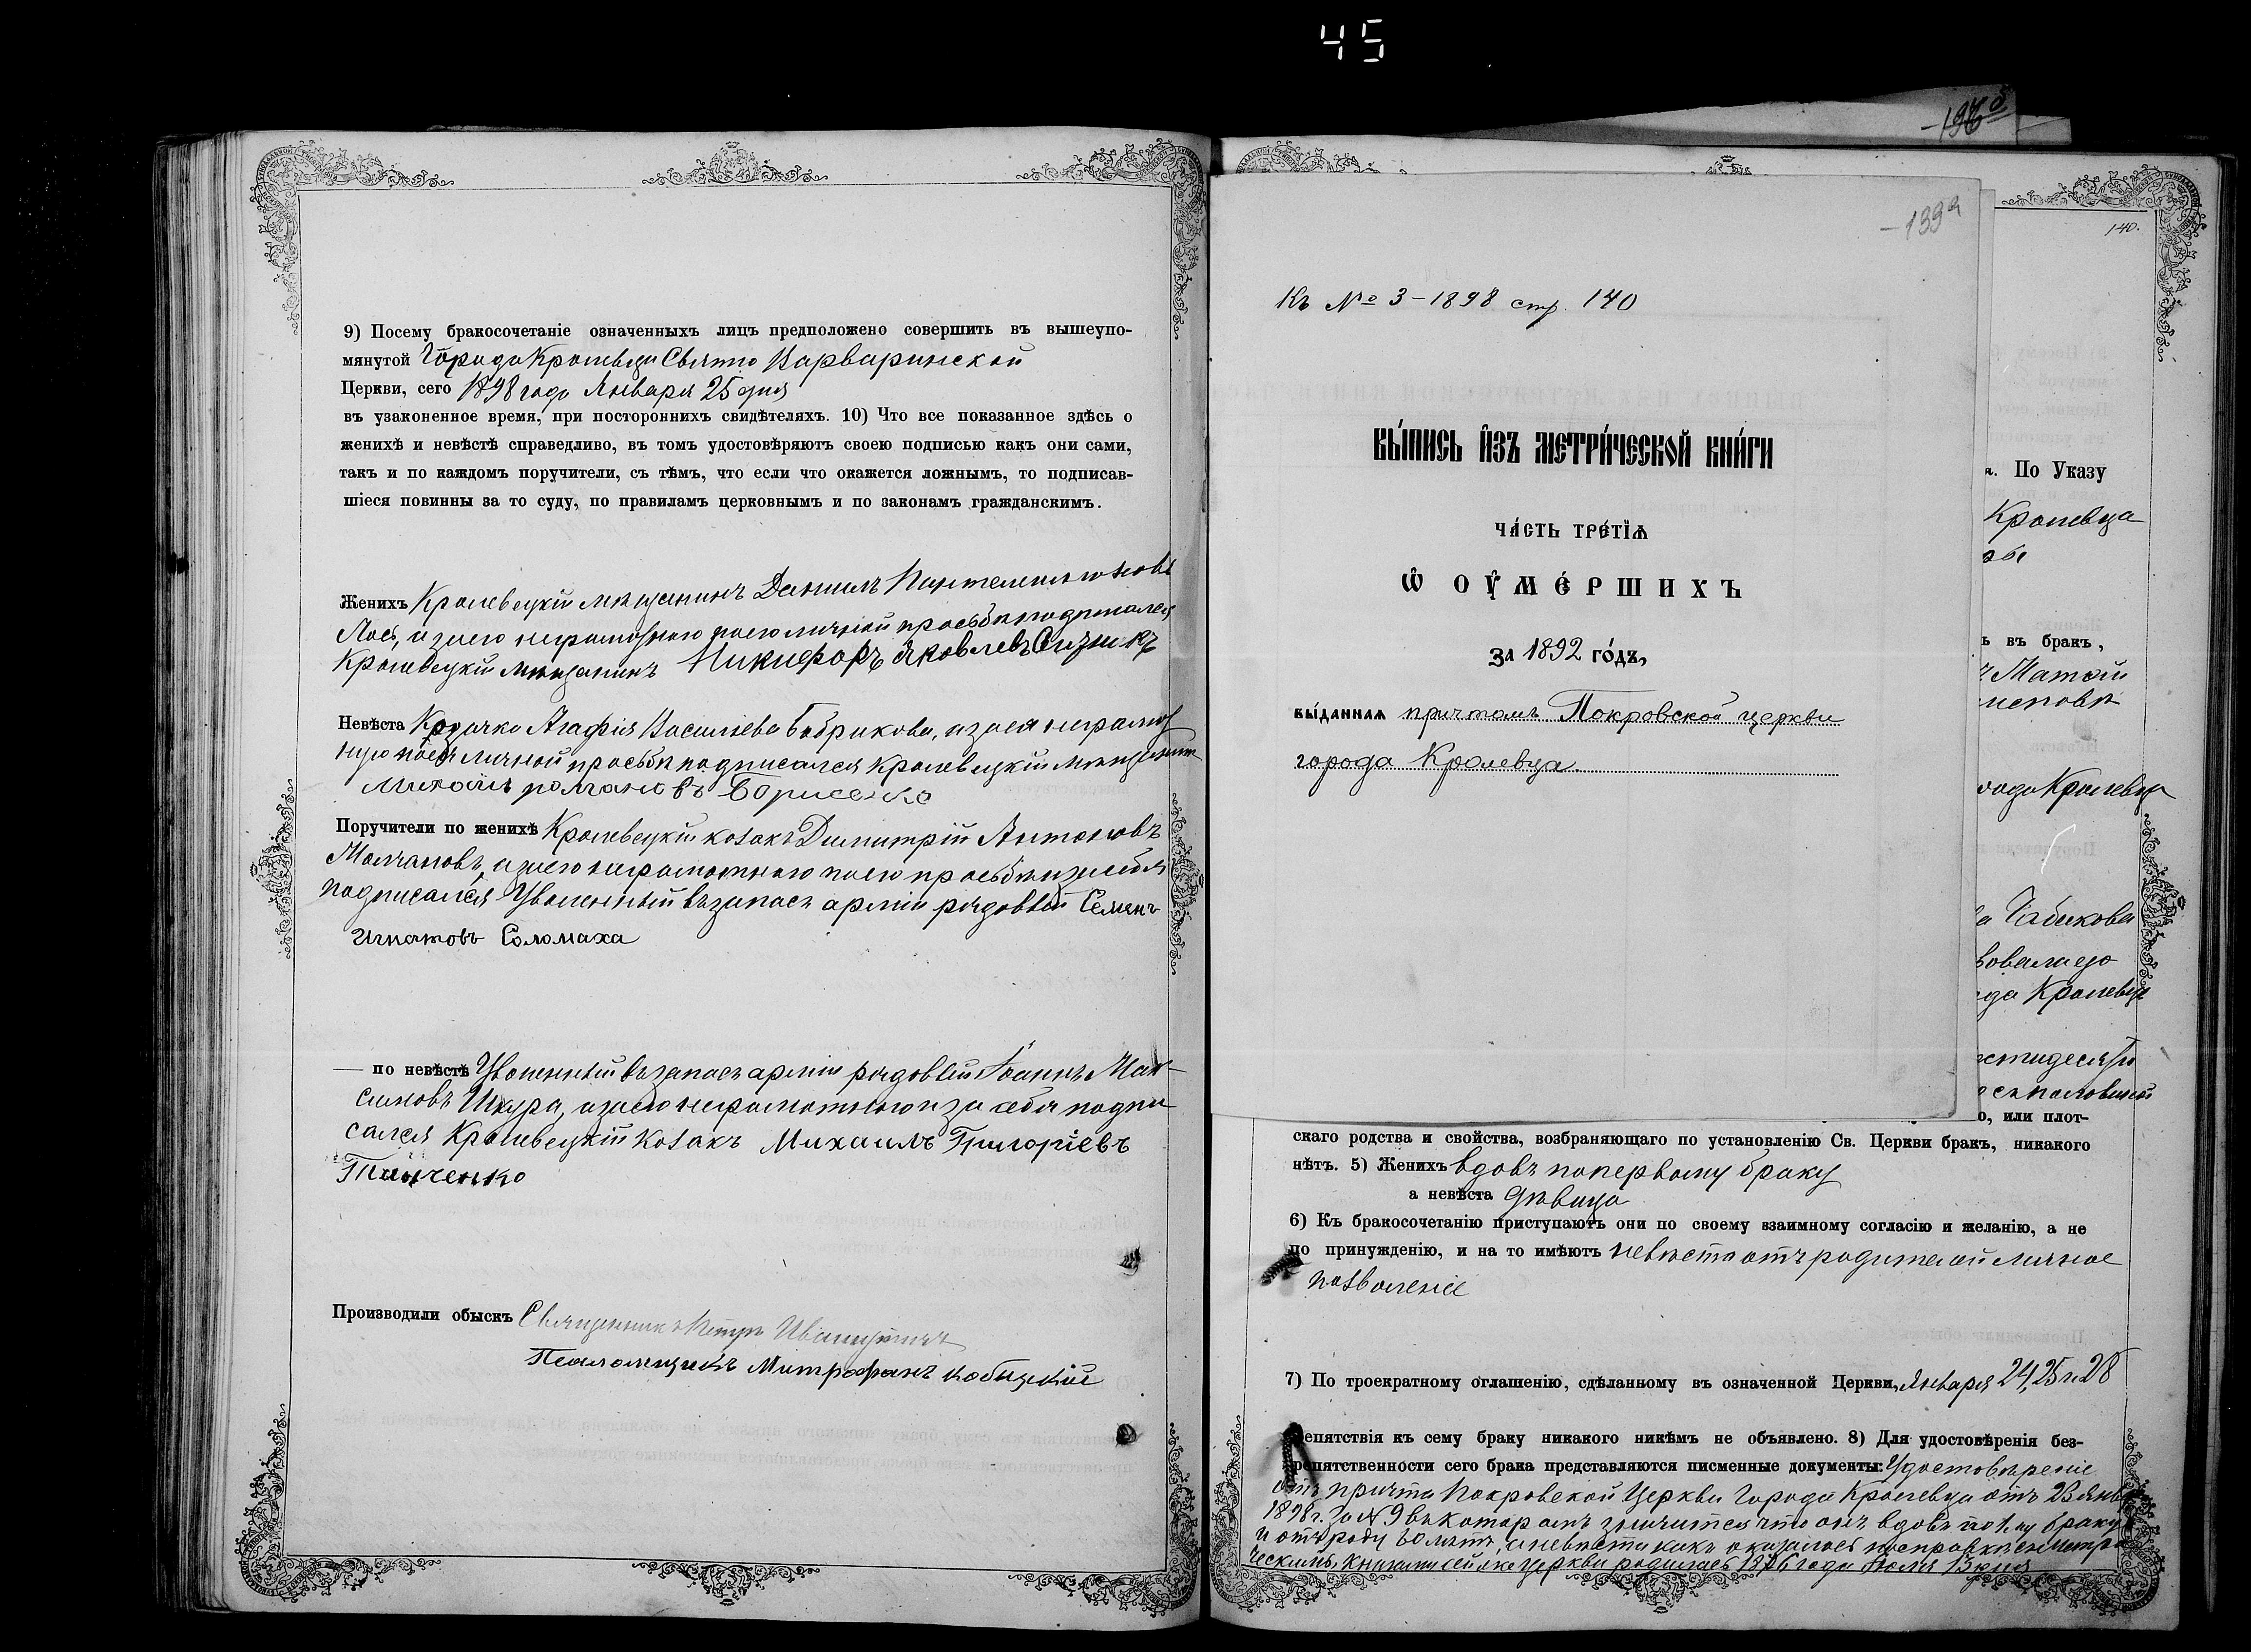 45
9) Посему бракосочетаніе означенныхъ лицъ предположено совершить въ вышеупо-
мянутой Города Кролевца Свято Варваринской
Церкви, сего 1898 года Января 25 дня
въ узаконенное время, при постороннихъ свидѣтеляхъ. 10) Что все показанное здѣсь о
женихѣ и невѣстѣ справедливо, въ томъ удостовѣряютъ своею подписью какъ они сами,
такъ и по каждомъ поручители, съ тѣмъ, что если что окажется ложнымъ, то подписав-
шіеся повинны за то суду, по правиламъ церковнымъ и по законамъ гражданскимъ.
Женихъ Кролевецкій мѣщанинъ Даніилъ Пантелеимоновъ
а за него неграмотнаго по его личной просьбѣ подписался
Кролевецкій мѣщанинъ Никифоръ Яковлевъ
Невѣста Козачка Агафія Васильева Бобрикова, а за ея неграмот
ную по ея личной просьбѣ подписался Кролевецкій мѣщанинъ
Михаилъ Романовъ Борисенко
Поручители по женихѣ Кролевецкій козакъ Димитрій Антоновъ
Молчановъ, а за его неграмотнаго по его просьбѣ и за себя
подписался Уволенный въ запасъ арміи рядовый Семенъ
Игнатовъ Соломаха
— по невѣстѣ Уволенный въ запасъ арміи рядовый Іоаннъ Мак-
симовъ Шкура, а за его неграмотнаго и за себя подпи
сался Кролевецкій козакъ Михаилъ Григоріевъ
Производили обыскъ Священникъ Петръ
Псаломщикъ Митрофанъ Кобызскій
-139а
Къ № 3-1898 стр. 140
ВЫ́ПИСЬ И҆ЗЪ МЕТРИ́ЧЕСКОЙ КНИ́ГИ
ЧА́СТЬ ТРЕ́ТІѦ
Ѡ҆ ОУ҆МЕ́РШИХЪ
ЗА 1892 ГО́ДЪ,
ВЫ́ДАННАѦ причтомъ Покровской церкви
города Кролевца.
140.
я. По Указу
Кролевца
ь въ бракъ,
города Кролевца
Кролевца
о, или плот-
скаго родства и свойства, возбраняющаго по установленію Св. Церкви бракъ, никакого
нѣтъ. 5) Женихъ вдовъ по первому браку
а невѣста дѣвица
6) Къ бракосочетанію приступаютъ они по своему взаимному согласію и желанію, а не
по принужденію, и на то имѣютъ невѣста отъ родителей личное
позволеніе
7) По троекратному оглашенію, сдѣланному въ означенной Церкви, Января 24, 25 и 28
репятствія къ сему браку никакого никѣмъ не объявлено. 8) Для удостовѣренія без-
репятственности сего брака представляются писменные документы: Удостовѣреніе
отъ причта Покровской Церкви Города Кролевца отъ 23 Янв
1898 г. за № 9 въ которомъ значится что онъ вдовъ по 1му браку
и отъ роду лѣтъ, а невѣста какъ оказалось по справкѣ съ метри
ческими книгами сей же церкви родилась 1876 года дня